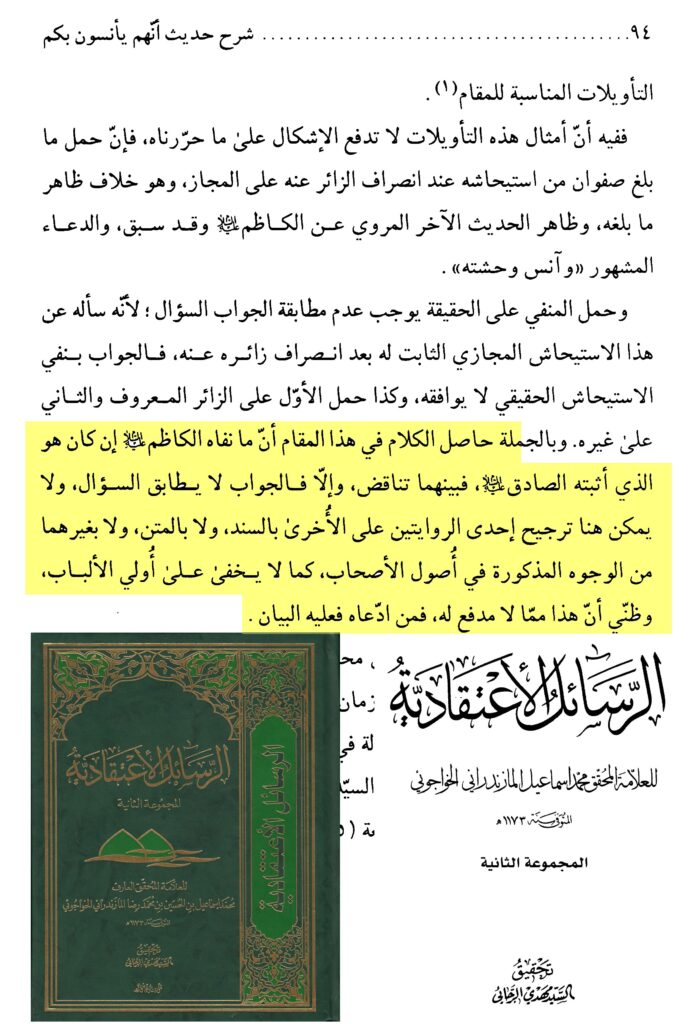 ٩٤ ........................................ شرح حديث أنّهم يأنسون بكم
التأويلات المناسبة للمقام(١) .
ففيه أنّ أمثال هذه التأويلات لا تدفع الإشكال علىٰ ما حرّرناه، فإنّ حمل ما
بلغ صفوان من استيحاشه عند انصراف الزائر عنه على المجاز، وهو خلاف ظاهر
ما بلغه، وظاهر الحديث الآخر المروي عن الكاظم عليه السلام وقد سبق، والدعاء
المشهور «وآنس وحشته» .
وحمل المنفي على الحقيقة يوجب عدم مطابقة الجواب السؤال ؛ لأنّه سأله عن
هذا الاستيحاش المجازي الثابت له بعد انصراف زائره عنه، فالجواب بنفي
الاستيحاش الحقيقي لا يوافقه، وكذا حمل الأوّل على الزائر المعروف والثاني
علىٰ غيره. وبالجملة حاصل الكلام في هذا المقام أنّ ما نفاه الكاظم عليه السلام إن كان هو
الذي أثبته الصادق عليه السلام، فبينهما تناقض، وإلّا فالجواب لا يطابق السؤال، ولا
يمكن هنا ترجيح إحدى الروايتين على الأُخرىٰ بالسند، ولا بالمتن، ولا بغيرهما
من الوجوه المذكورة في أُصول الأصحاب، كما لا يخفىٰ علىٰ أُولي الألباب،
وظنّي أنّ هذا ممّا لا مدفع له، فمن ادّعاه فعليه البيان .
الرسائل الأعتقادية
للعلامة المحقق محمد اسماعيل المازندراني الخواجوئي
المتوفى سنة ١١٧٣ه
المجموعة الثانية
تحقيق
السيد مهدي الرجائي
الرسائل الأعتقادية
المجموعة الثانية
للعلامة المحقق العارف
محمد اسماعيل بن الحسين بن محمد رضا المازندراني الخواجوئي
المتوفى سنة ١١٧٣ه
تحقيق
السيد مهدي الرجائي
الرسائل الأعتقادية